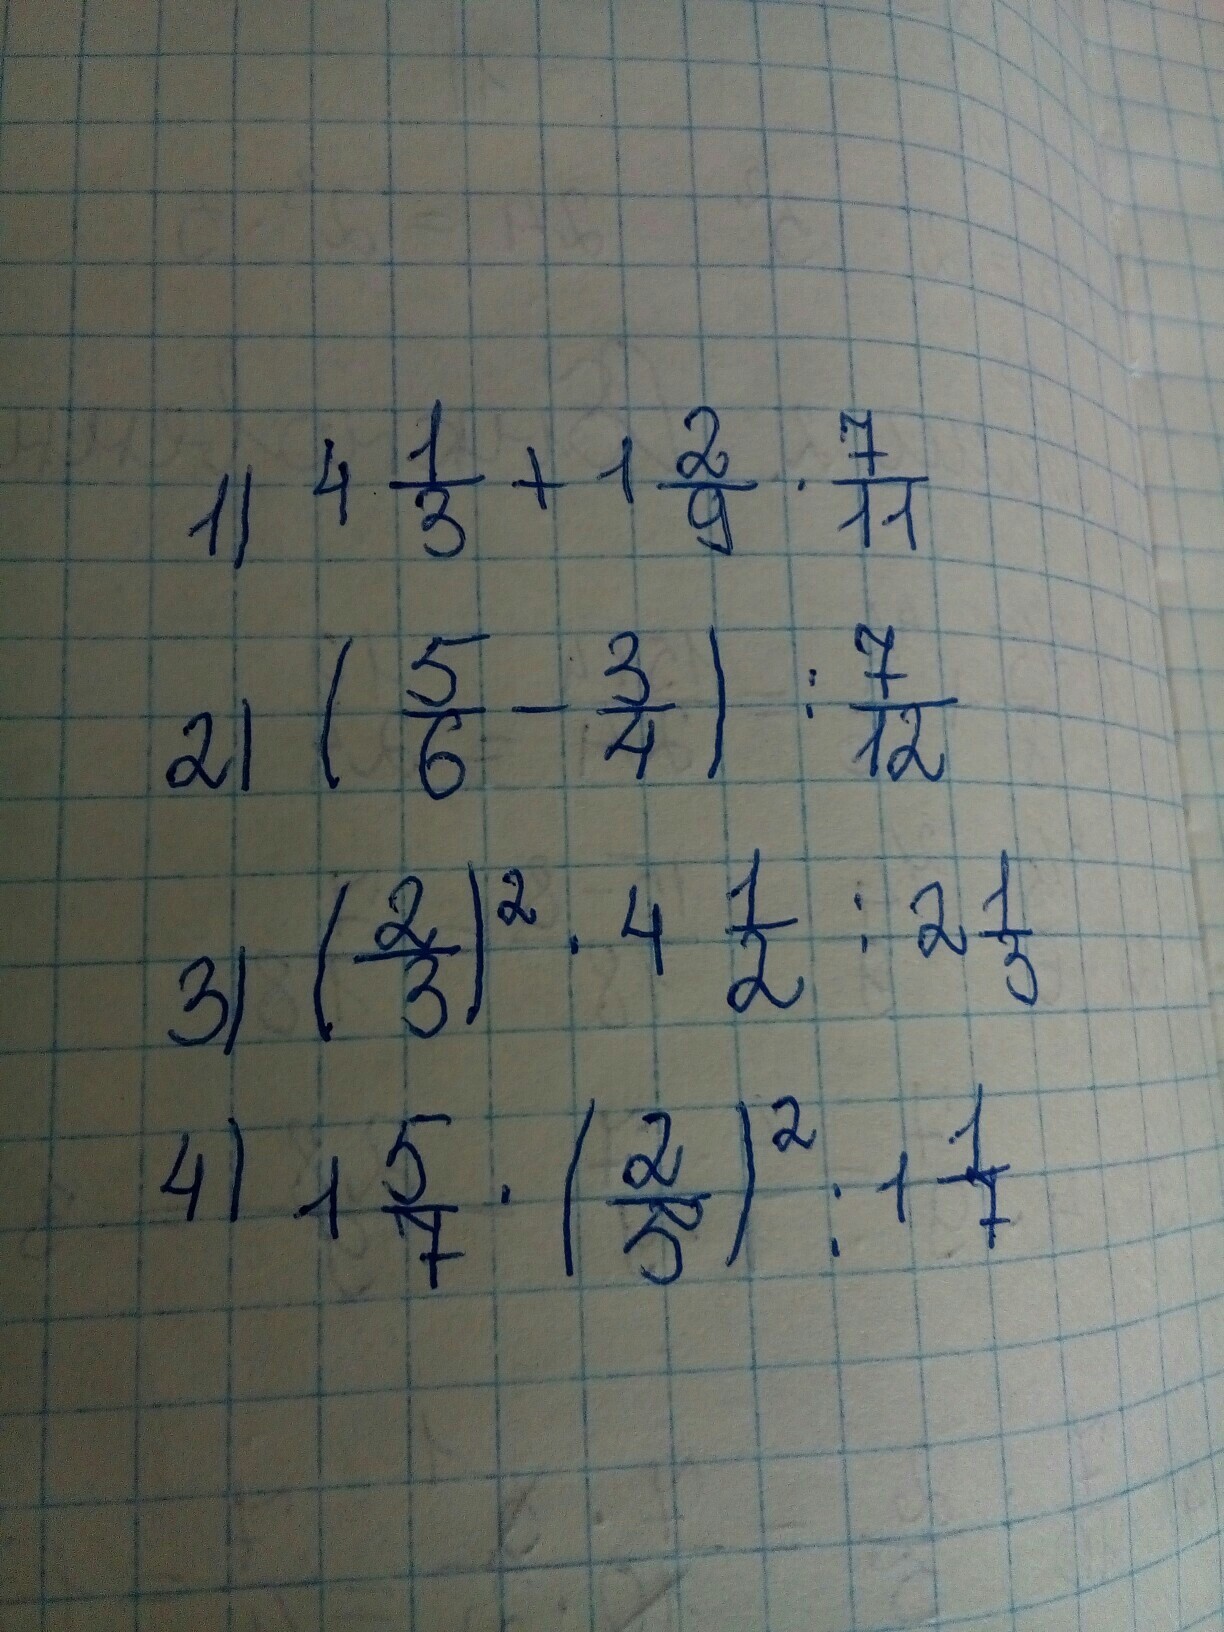 1) 4 1/3 + 1 2/9 · 7/11
2) (5/6 - 3/4) : 7/12
3) (2/3)² · 4 1/2 : 2 1/3
4) 1 5/7 · (2/5)² : 1 1/7